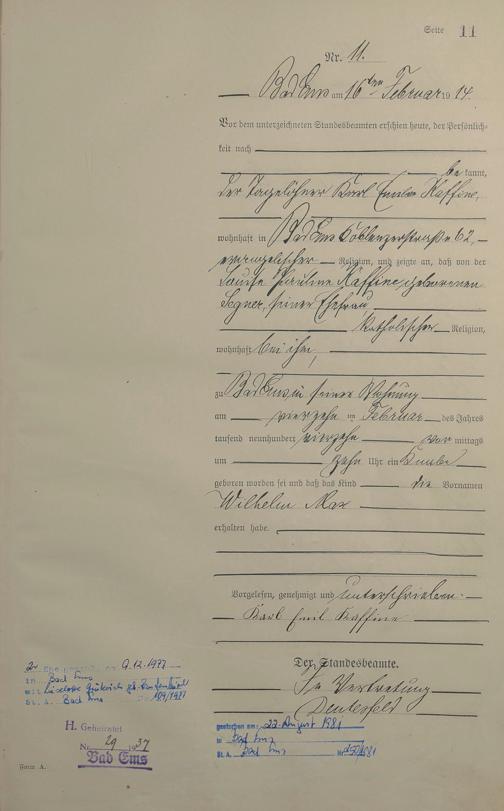 Seite 11
Nr. 11.
Bad Ems am 16ten Februar 1914.
Vor dem unterzeichneten Standesbeamten erschien heute, der Persönlich-
keit nach
bekannt,
der Tagelöhner Karl Emil Kaffine,
wohnhaft in Bad Ems Coblenzerstraße 62,
evangelischer Religion, und zeigte an, daß von der
Pauline Kaffine, geborenen
seiner Ehefrau
katholischer Religion,
wohnhaft bei ihm,
zu Bad Ems in seiner Wohnung
am vierzehn ten Februar des Jahres
tausend neunhundert vierzehn vor mittags
um zehn Uhr ein Knabe
geboren worden sei und daß das Kind die Vornamen
Wilhelm Max
erhalten habe.
Vorgelesen, genehmigt und unterschrieben.
Karl Emil Kaffine
Der Standesbeamte.
In Vertretung
2. 9.12.1977
in Bad Ems
mit
St. A. Bad Ems 109/1977
H. Geheiratet
Nr. 29 1937
Bad Ems
gestorben am: 22. August 1981
in Bad Ems
St. A. Bad Ems Nr. /1981
Form A.